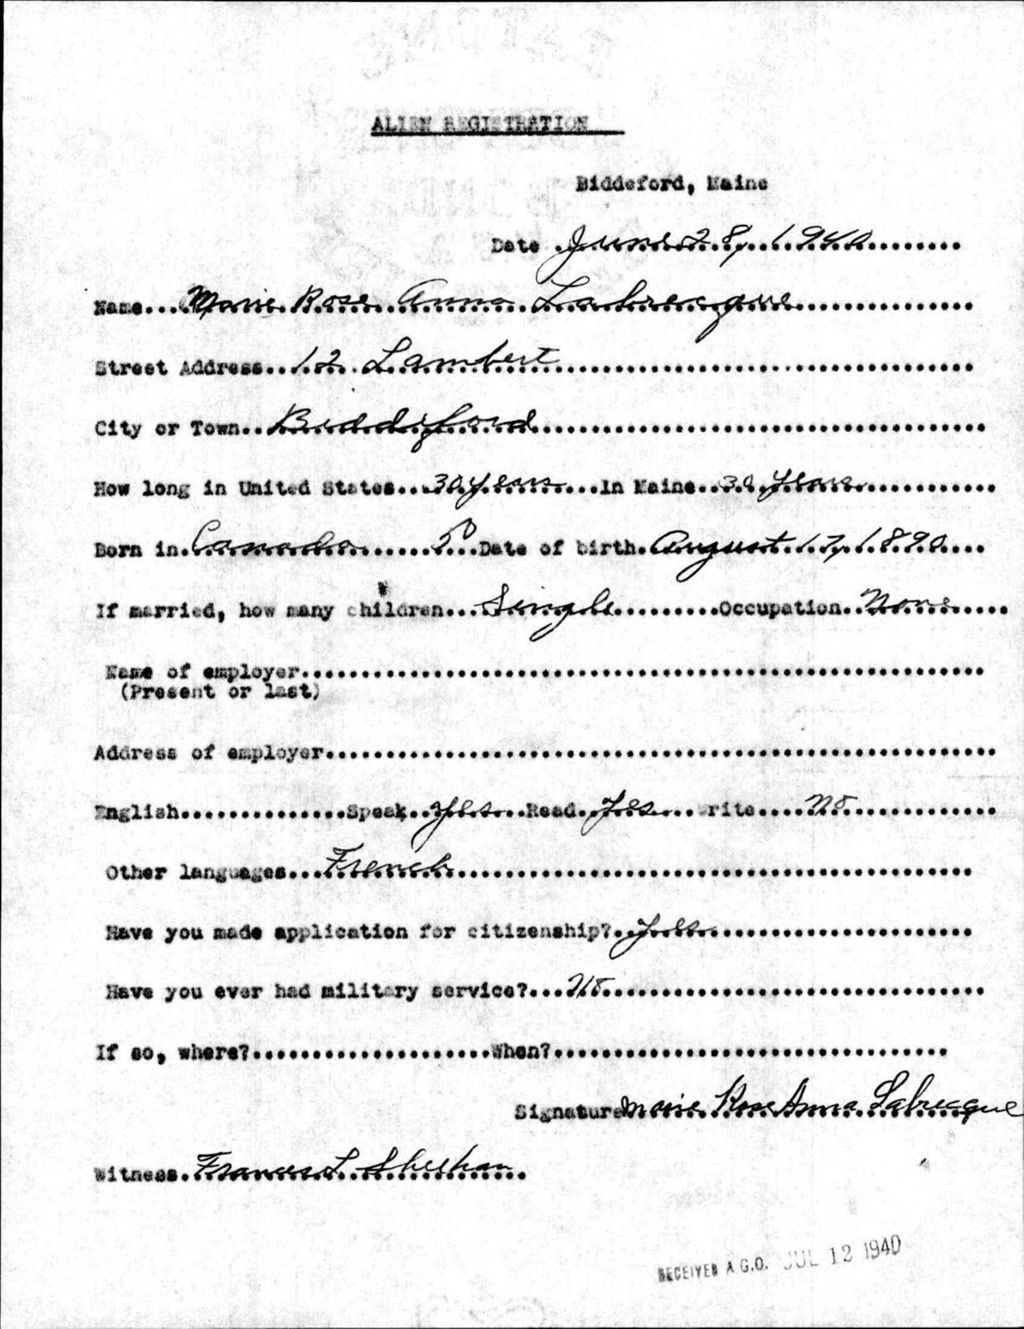 ALIEN REGISTRATION
Biddeford, Maine
Date June 28, 1940
Name Marie Rose Anna Labrecque
Street Address 12 Lambert
City or Town Biddeford
How long in United States 30 years In Maine 30 years
Born in Canada 50 Date of birth August 17, 1890
If married, how many children Single Occupation None
Name of employer
(Present or last)
Address of employer
English Speak Yes Read Yes Write No
Other languages French
Have you made application for citizenship? Yes
Have you ever had military service? No
If so, where? When?
Signature Marie Rose Anna Labrecque
Witness Frances L Sheehan
RECEIVED A.G.O. JUL 12 1940